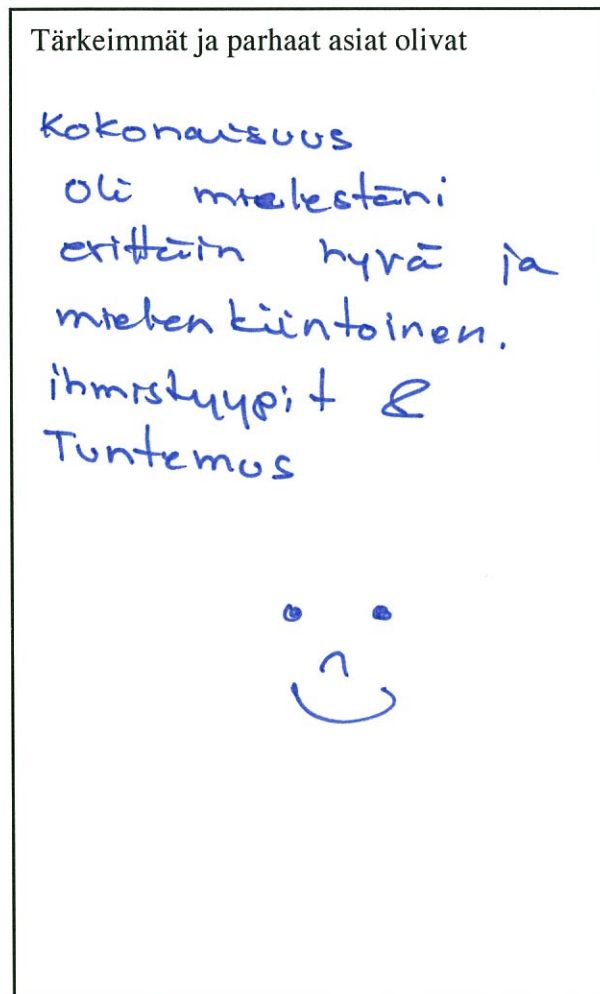 Tärkeimmät ja parhaat asiat olivat
Kokonaisuus
oli mielestäni
erittäin hyvä ja
mielenkiintoinen.
ihmistyypit &
Tuntemus